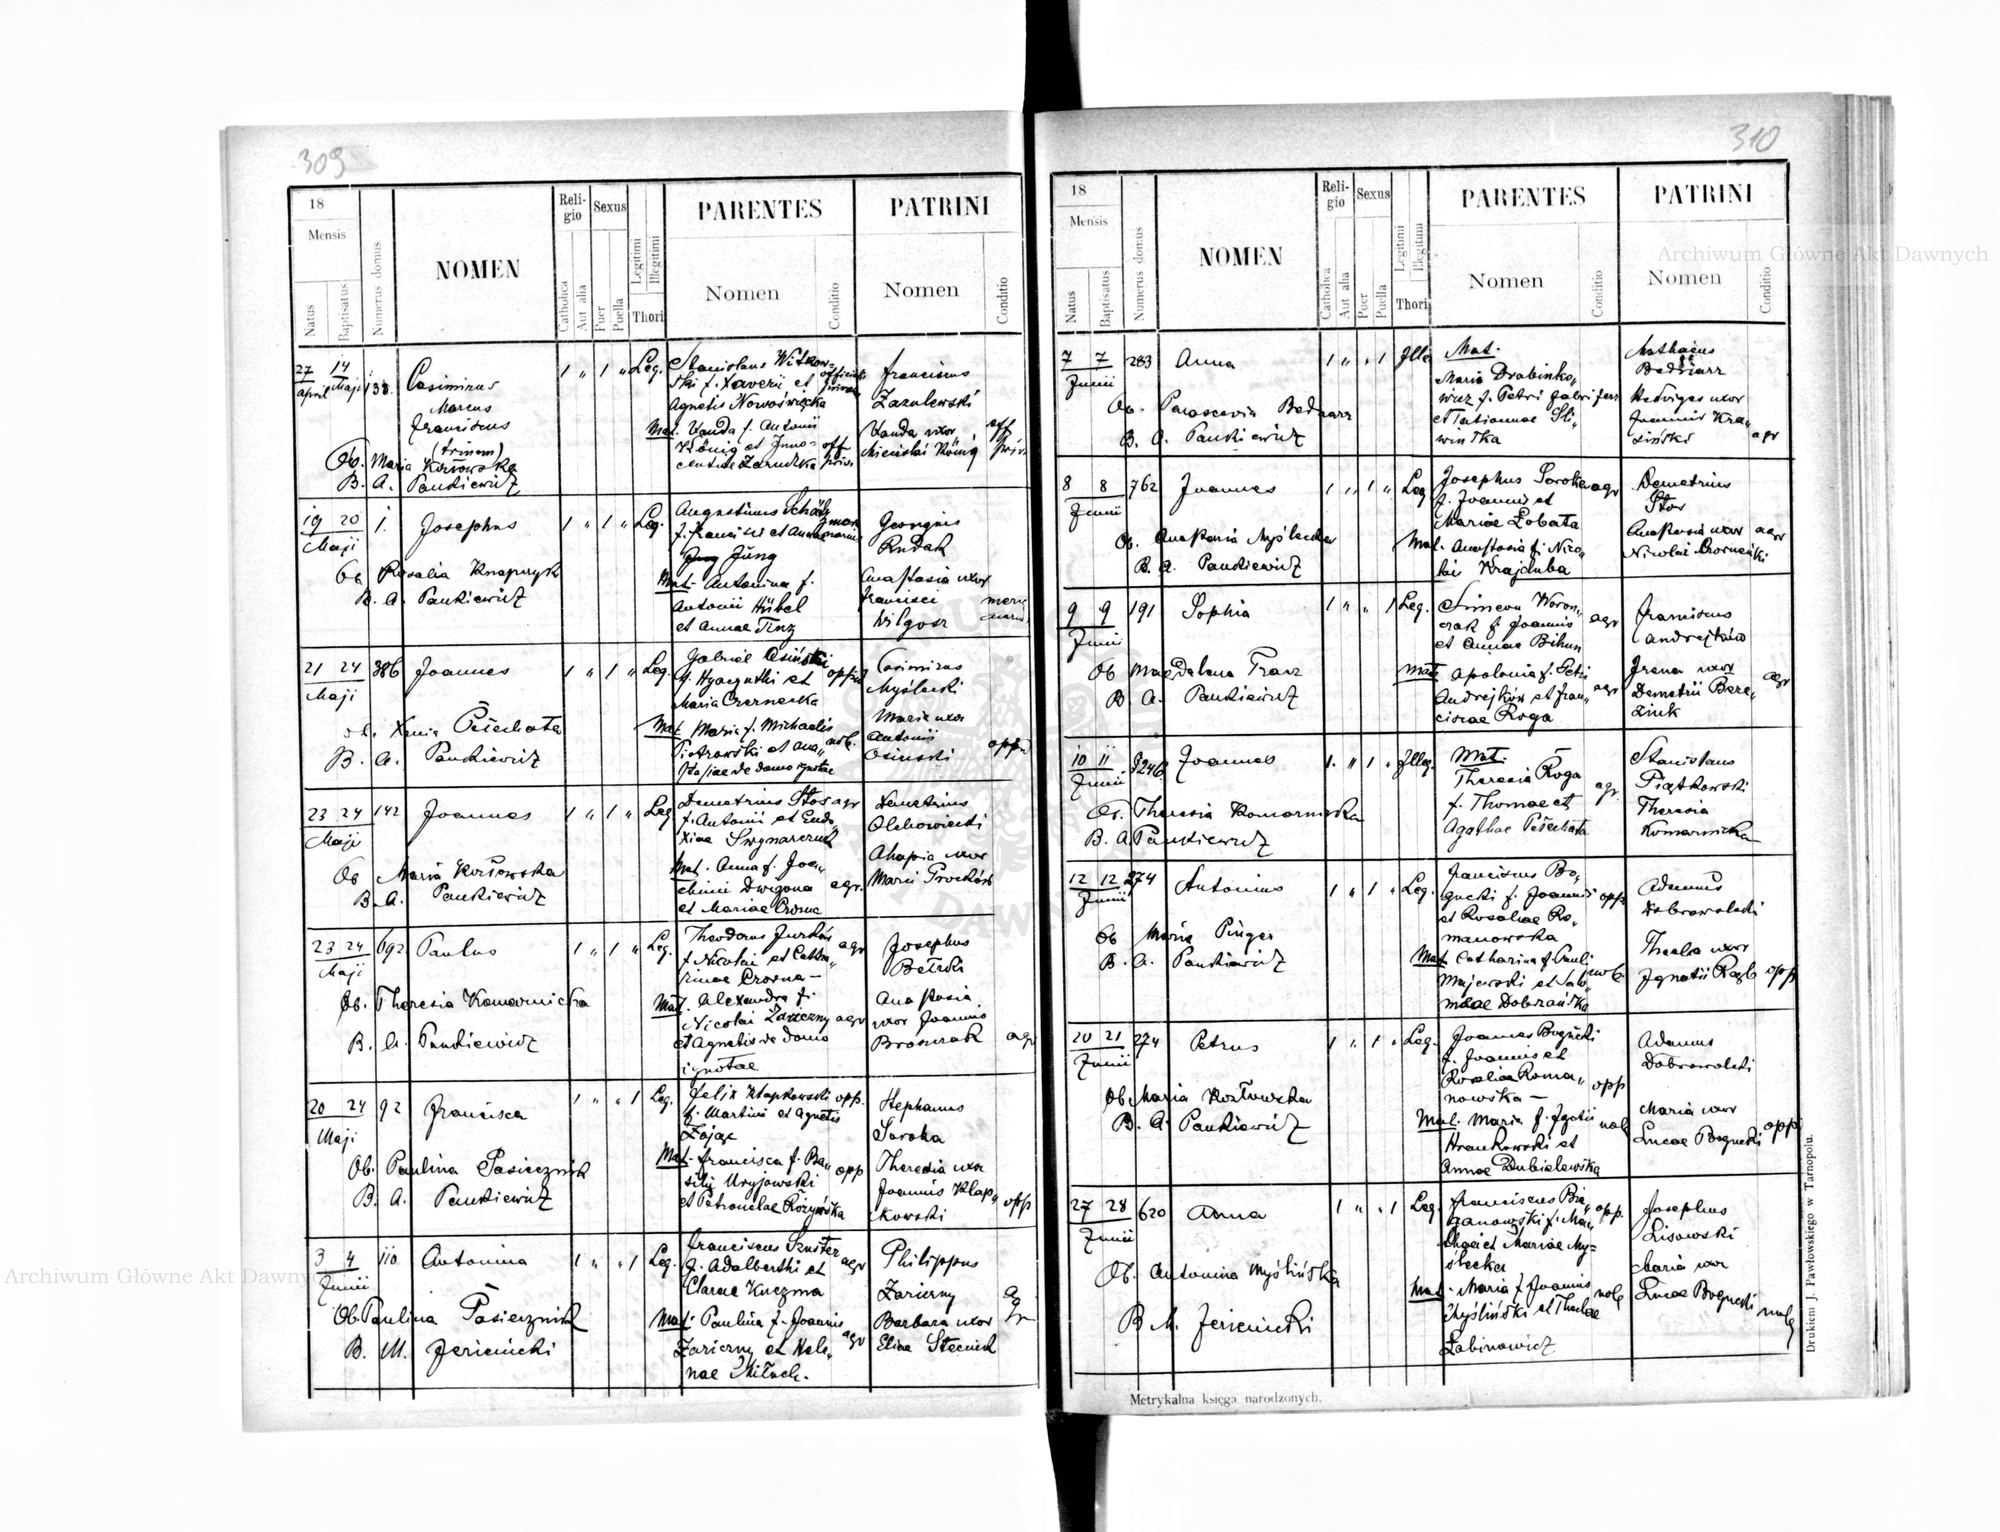 309
18
Mensis
Natus
Baptisatus
Numerus domus
NOMEN
Reli-
gio
Catholica
Aut alia
Sexus
Puer
Puella
Legitimi
Illegitimi
Thori
PARENTES
Nomen
Conditio
PATRINI
Nomen
Conditio
27 14
April Maji
138.
Casimirus
Marcus
Franciscus
(trinom)
Ob. Maria Kozłowska
B. A. Pankiewicz
1 " 1 " Leg.
Stanislaus Witkow-
ski f. Xaverii et
Agnetis Nowosiwecka
Mat. Wanda f. Antonii
König et Inno-
centiae Zarudzka
off
priv.
Franciscus
Zazulewski
Wanda uxor
Miecislai König
off
priv.
19 20
Maji
1.
Josephus
Ob Rosalia Knapczyk
B. A. Pankiewicz
1 " 1 " Leg.
Augustinus Schölz
f. Francisci et Annae
Jung
Mat. Antonina f.
Antonii Hübel
et Annae Tinz
Georgius
Rudak
Anastasia uxor
Francisci
Wilgosz
21 24
Maji
386
Joannes
Ob. Xenia Pełechata
B. A. Pankiewicz
1 " 1 " Leg.
Gabriel Osiński
f. Hyacynthi et
Maria Czernecka
Mat. Maria f. Michaelis
Piotrowski et Ana„
stasiae de domo ignotae
nob.
Casimirus
Myślecki
Maria uxor
Antonii
Osinski
23 24
Maji
142
Joannes
Ob Maria Kozłowska
B. A. Pankiewicz
1 " 1 " Leg
Demetrius Stos agr
f. Antonii et Eudo
xiae
Mat. Anna f. Joa„
chimi Dwigona agr.
et Mariae Crosna
Demetrius
Olchowiecki
Ahapia uxor
23 24
Maji
692
Paulus
Ob. Theresia Komarnicka
B. A. Pankiewicz
1 " 1 " Leg.
Theodorus agr
f. Nicolai et Catha„
rinae Crosna —
Mat. Alexandra f.
Nicolai Zariczny agr
et Agnetis de domo
ignotae
Josephus
Anastasia
uxor Joannis
agr
20 24
Maji
92
Francisca
Ob. Paulina Pasiecznik
B. A. Pankiewicz
1 " " 1 Leg.
Felix Klapkowski opp.
f. Martini et Agnetis
Zając
Mat. Francisca f. Ba„
silii Uryjowski opp
et Petronelae
Stephanus
Soroka
Theresia uxor
Joannis Klap„
kowski
opp
3 4
Junii
110
Antonina
Ob. Paulina Pasiecznik
B. M. Jericnicki
1 " " 1 Leg.
Franciscus Szuster agr
f. Adalberthi et
Clarae Kuczma
Mat. Paulina f. Joannis
Zarierny et Hele„
nae
agr
Philippus
Zarierny
Barbara uxor
Eliae Stecnik
agr
310
18
Mensis
Natus
Baptisatus
Numerus domus
NOMEN
Reli-
gio
Catholica
Aut alia
Sexus
Puer
Puella
Legitimi
Illegitimi
Thori
PARENTES
Nomen
Conditio
PATRINI
Nomen
Conditio
7 7
Junii
283
Anna
Ob. Parascevia Bednarz
B. A. Pankiewicz
1 " " 1 Illeg
Mat.
Maria Drabinko„
wicz f. Petri
et Tatiannae Sli„
winska
Mathaeus
Bednarz
Hedviges uxor
Joannis Kra„
siński agr
8 8
Junii
762
Joannes
Ob. Anastasia Myślecka
B. A. Pankiewicz
1 " 1 " Leg
Josephus Soroka agr
f. Joannis et
Mariae Łobata
Mat. Anastasia f. Nico„
lai Krajduba
Demetrius
Stos
Anastasia uxor agr
Nicolai
9 9
Junii
191
Sophia
Ob Magdalena Franz
B A. Pankiewicz
1 " " 1 Leg.
Simeon Woron„
czak f. Joannis agr
et Annae Bihun
Mat. Apolonia f. Petri
Andrejków et Fran„ agr
ciscae Roga
Franciscus
Andrejków
Irena uxor
Demetrii Bere„
ziuk
agr
10 11
Junii
Joannes
Ob. Theresia Komarnicka
B. A. Pankiewicz
1. " 1 " Illeg.
Mat.
Theresia Roga
f. Thomae et
Agathae Pełechata
agr.
Stanislaus
Piątkowski
Theresia
Komarnicka
12 12
Junii
274
Antonius
Ob Maria Pinger
B. A. Pankiewicz
1 " 1 " Leg.
Franciscus Bo„
gucki f. Joannis opp
et Rosaliae Ro„
manowska
Mat. Catharina f. Pauli
Majewski et Salo„
meae Dobrzańska
nob.
Adamus
Dobrowolski
Thecla uxor
Ignatii opp
20 21
Junii
274
Petrus
Ob. Maria Kozłowska
B. A. Pankiewicz
1 " 1 " Leg.
Joannes Bogucki
f. Joannis et
Rosaliae Roma„
nowska —
opp
Mat. Maria f. nob
Hrankowski et
Annae Dubielewska
Adamus
Dobrowolski
Maria uxor
Lucae Bogucki opp
27 28
Junii
620
Anna
Ob. Antonina Myślińska
B M. Jericnicki
1 " " 1 Leg
Franciscus Bie„ opp.
Mariae My„
ślecka
Mat. Maria f. Joannis nob
Myśliński et Theclae
Łabinowicz
Josephus
Lisowski
Maria uxor
Lucae Bogucki
nob
Metrykalna księga narodzonych.
Drukiem J. Pawłowskiego w Tarnopolu.
Archiwum Główne Akt Dawnych
Archiwum Główne Akt Dawnych